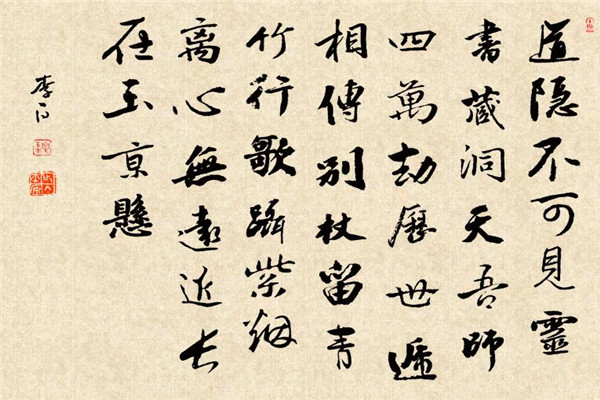 道隐不可見靈
書藏洞天吾師
四萬劫歷世遞
相傳别杖留青
竹行歌蹑紫烟
离心無遠近长
在玉京懸
李白